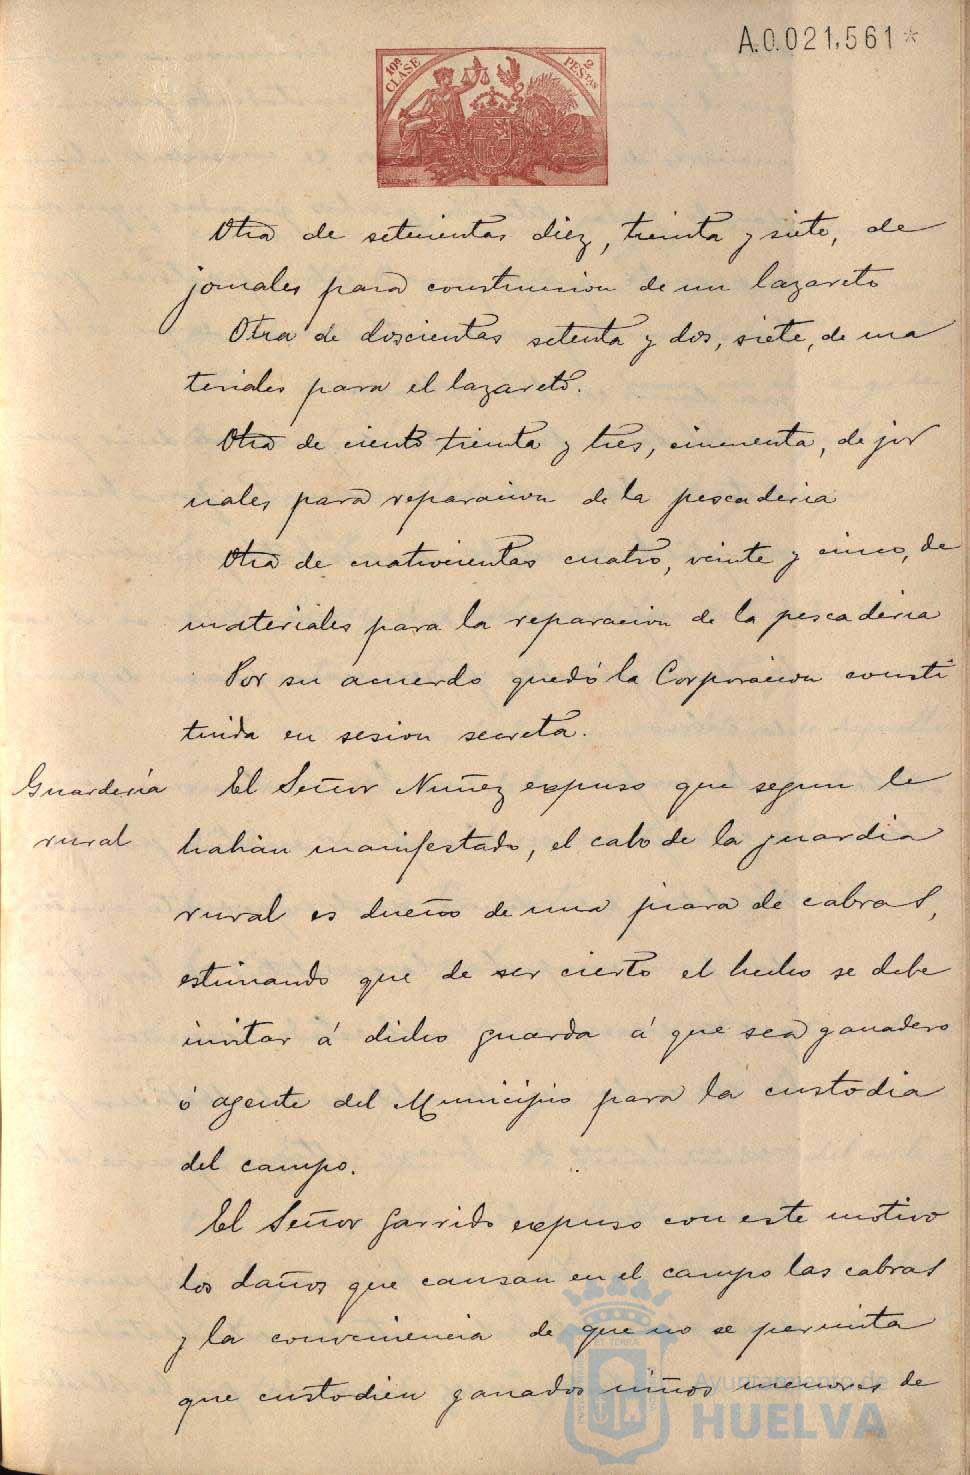 A.0.021,561*
10ª CLASE
2 PESTAS
Otra de setecientas diez, treinta y siete, de
jornales para construccion de un lazareto
Otra de doscientas setenta y dos, siete, de ma
teriales para el lazareto.
Otra de ciento treinta y tres, cincuenta, de jor
nales para reparacion de la pescaderia
Otra de cuatrocientas cuatro, veinte y cinco, de
materiales para la reparacion de la pescaderia
Por su acuerdo quedó la Corporacion consti
tuida en sesion secreta.
Guardería
rural
El Señor Nuñez expuso que segun le
habian manifestado, el cabo de la guardia
rural es dueño de una piara de cabras,
estimando que de ser cierto el hecho se debe
invitar á dicho guarda á que sea ganadero
ó agente del Municipio para la custodia
del campo.
El Señor Garrido expuso con este motivo
los daños que causan en el campo las cabras
y la conveniencia de que no se permita
que custodien ganados niños menores de
Ayuntamiento de
HUELVA